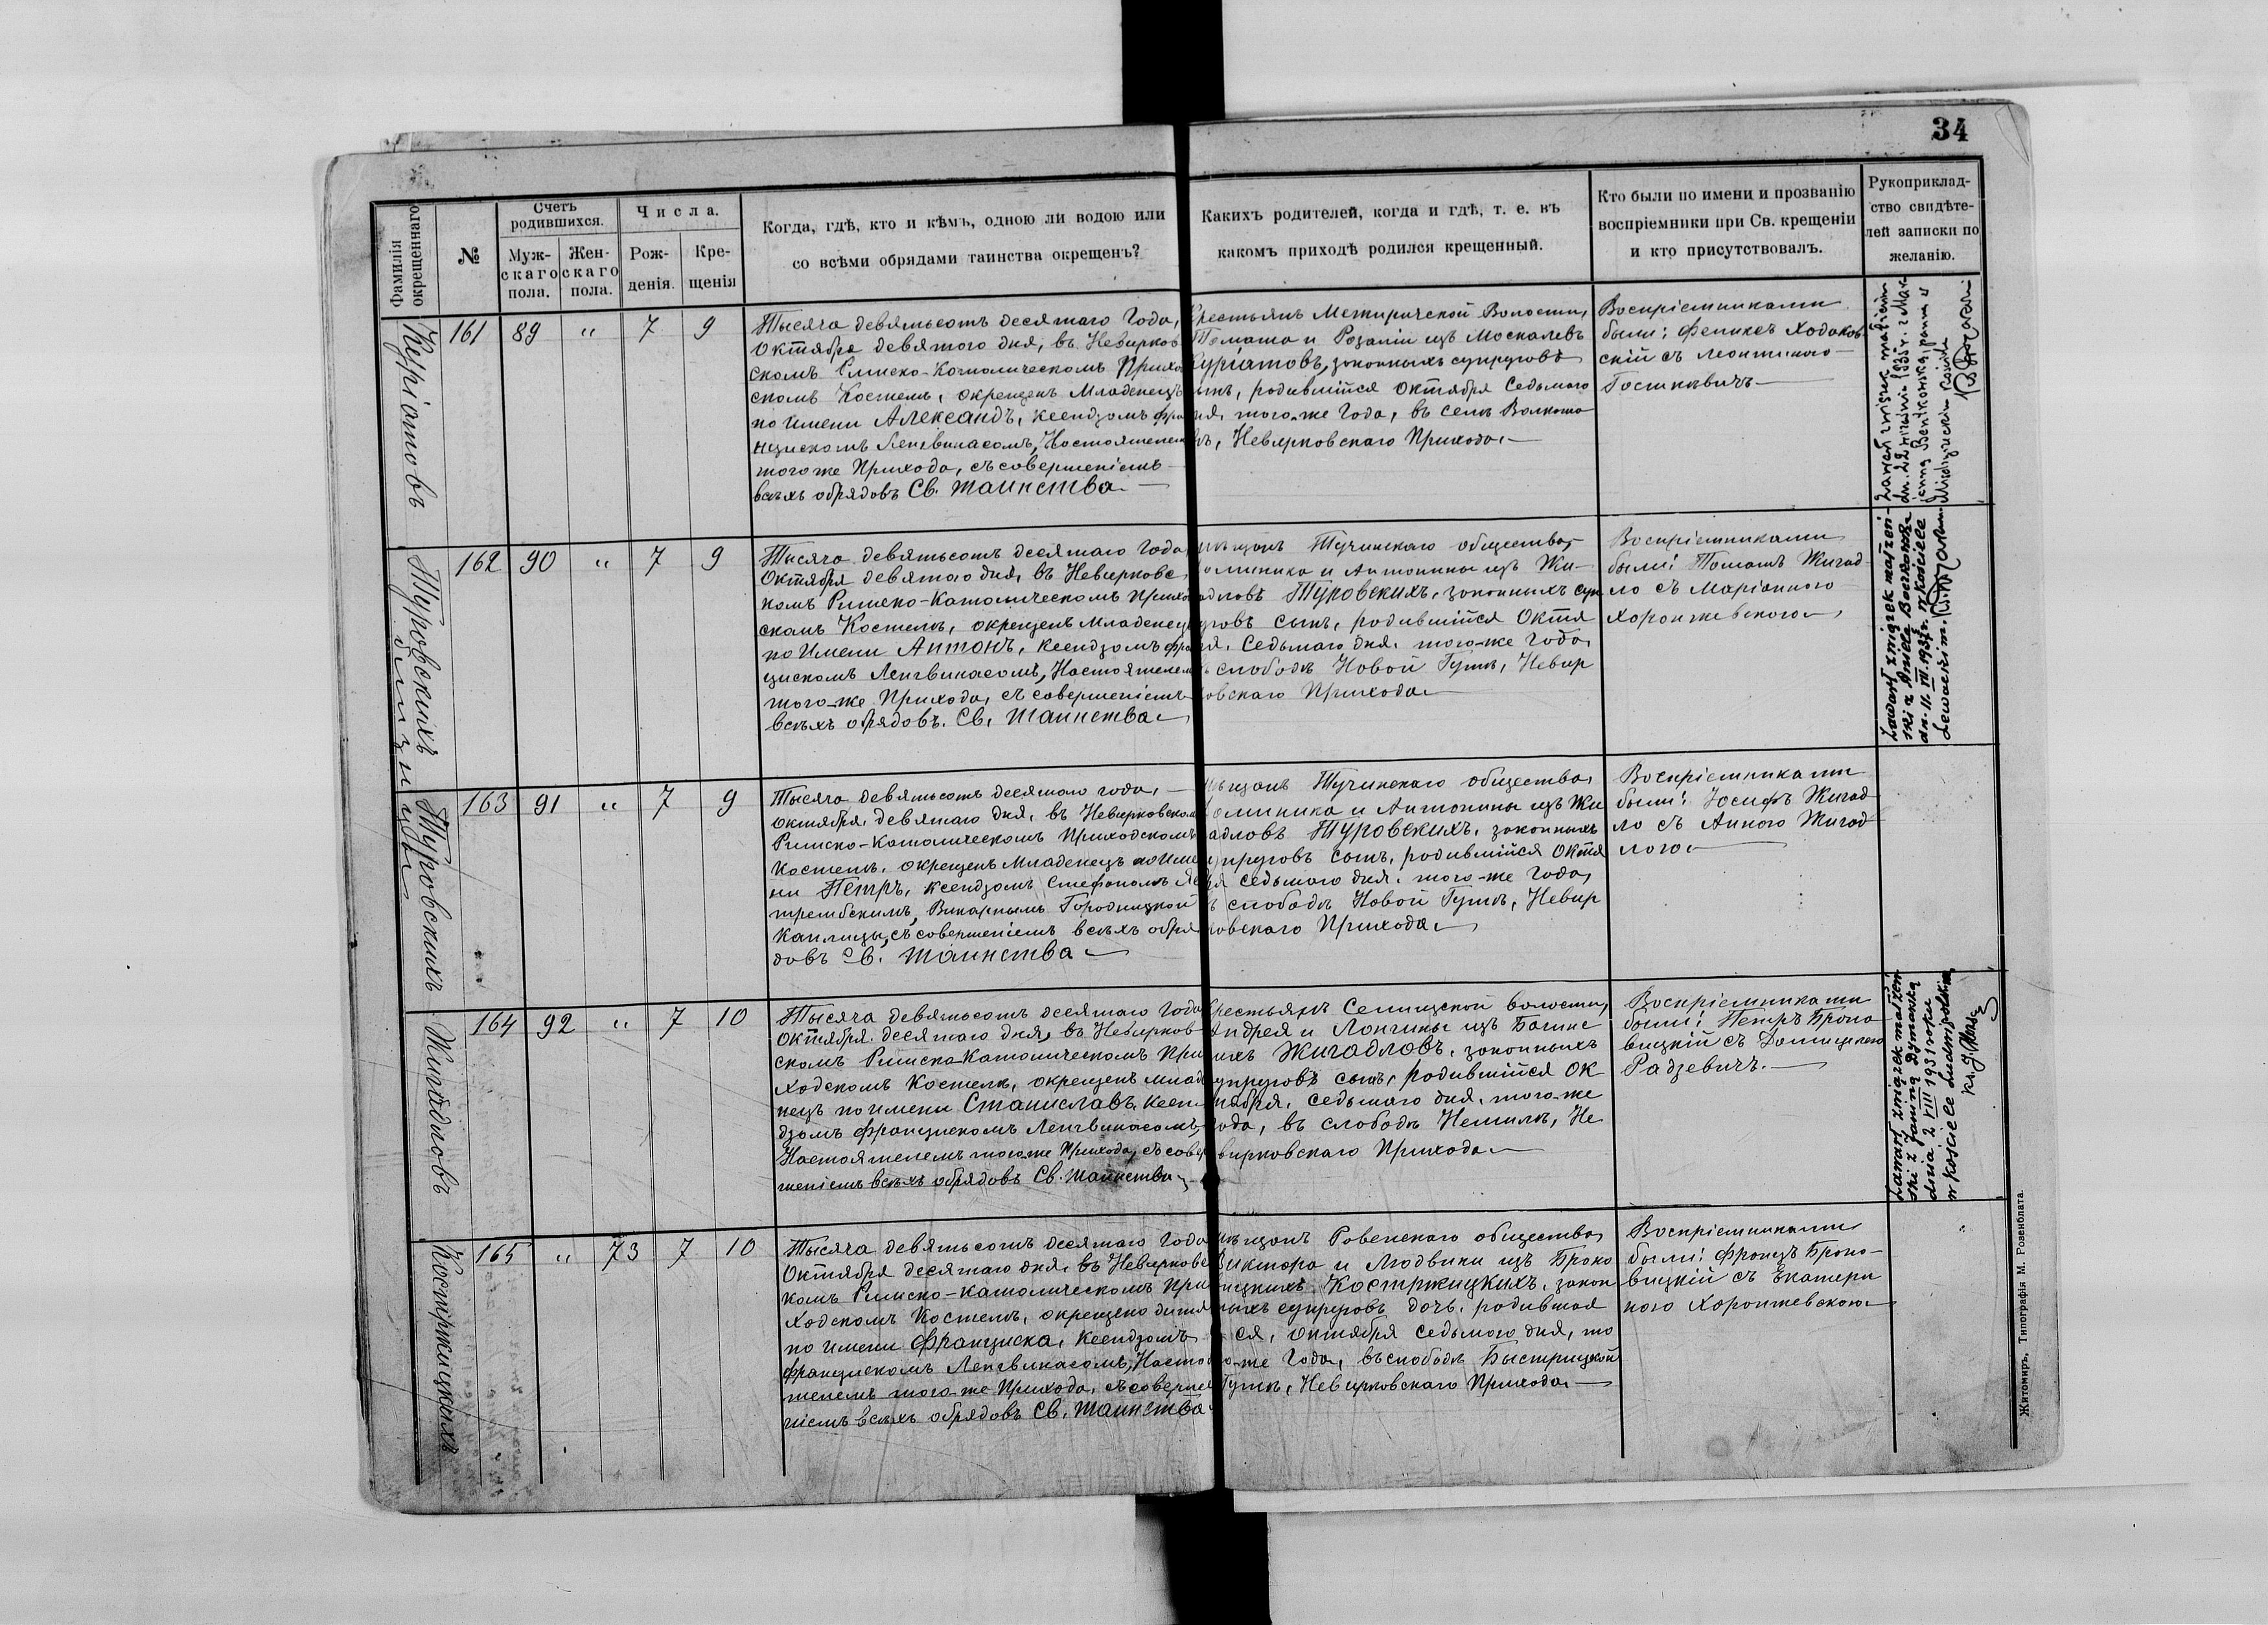 34
Фамилія окрещеннаго
№
Счетъ родившихся.
Мужскаго пола.
Женскаго пола.
Числа.
Рожденія.
Крещенія
Когда, гдѣ, кто и кѣмъ, одною ли водою или
со всѣми обрядами таинства окрещенъ?
Какихъ родителей, когда и гдѣ, т. е. въ
какомъ приходѣ родился крещенный.
Кто были по имени и прозванію
воспріемники при Св. крещеніи
и кто присутствовалъ.
Рукоприклад-
ство свидѣте-
лей записки по
желанію.
Куріатовъ
161 89 " 7 9
Тысяча девятьсотъ десятаго Года,
Октября девятого дня, въ Невирков
скомъ Римско-Католическомъ Прихо
скомъ Костелѣ, окрещенъ Младенецъ
по Имени Александъ, Ксендзомъ Фран
цискомъ Ленгвинасомъ, Настоятелем
того же Прихода, съ совершеніемъ
всѣхъ обрядовъ Св. Таинства.
Крестьянъ Межиричской Волости,
Томаша и Розаліи изъ Москалевъ
Куріатовъ, законныхъ супруговъ
сынъ, родившійся Октября Седьмого
дня, того-же Года, въ селѣ
Невирковскаго Прихода.
Воспріемниками
были: Феликсъ Ходаков
скій съ Леонтиною
Госткевичъ
Zawarł związek małżeński
dn. 22 1935 r. z Mar
janną Bentkowską, panną w
Międzyrzeckim kościele
Туровскихъ
близнецы
162 90 " 7 9
Тысяча девятьсотъ десятаго Года
Октября девятаго дня, въ Невирковс
комъ Римско-Католическомъ Прихо
скомъ Костелѣ, окрещенъ Младенец
по Имени Антонъ, Ксендзомъ Фран
цискомъ Ленгвинасомъ, Настоятелем
того-же Прихода, съ совершеніемъ
всѣхъ обрядовъ Св. Таинства
мѣщанъ Тучинскаго общества,
Доминика и Антонины изъ Жи-
гадловъ Туровскихъ, законныхъ суп
руговъ сынъ, родившійся Октя
бря, Седьмаго дня, того-же Года,
въ слободѣ Новой Гутѣ, Невир
ковскаго Прихода
Воспріемниками
были: Томашъ Жигад-
ло съ Маріанною
Хоронжевскою
Zawarł związek małżeń-
ski z Anielą
dn. 11. VII. 1937 r. w kościele
Lewaczim.
Туровскихъ
163 91 " 7 9
Тысяча девятьсотъ десятаго года,
октября, девятаго дня, въ Невирковском
Римско-Католическомъ Приходскомъ
Костелѣ, окрещенъ Младенецъ по Име
ни Петръ, Ксендзомъ Стефаномъ Яс
трембскимъ, Викарнымъ Городницкой
Каплицы, съ совершеніемъ всѣхъ обря
довъ Св. Таинства
мѣщанъ Тучинскаго общества,
Доминика и Антонины изъ Жи
гадловъ Туровскихъ, законныхъ
супруговъ сынъ, родившійся Октя
бря седьмого дня, того-же Года,
въ слободѣ Новой Гутѣ, Невир
ковскаго Прихода
Воспріемниками
были: Іосифъ Жигад-
ло съ Анною Жигад
лою
Жигадловъ
164 92 " 7 10
Тысяча девятьсотъ десятаго Года
Октября десятаго дня, въ Невирков
скомъ Римско-Католическомъ При
ходскомъ Костелѣ, окрещенъ Млад
нецъ по имени Станиславъ, Ксен-
дзомъ Францискомъ Ленгвинасомъ,
Настоятелемъ того же Прихода, съ совер
шеніемъ всѣхъ обрядовъ Св. Таинства
Крестьянъ Селищской волости,
Андрея и Лонгины изъ Багинс
кихъ Жигадловъ, законныхъ
супруговъ сынъ, родившійся Ок-
тября, седьмаго дня, того-же
Года, въ слободѣ Немилѣ, Не
вирковскаго Прихода
Воспріемниками
были: Петръ Броно
вицкій съ Домицелею
Радзевичъ.
Zawarł związek małżeń
ski z Janiną Dymowską
dnia 2 VIII 1931 roku
w kościele Ludwipolskim
Костржицкихъ
165 " 73 7 10
Тысяча девятьсотъ десятаго Года
Октября десятаго дня, въ Невирковс
комъ Римско-Католическомъ При
ходскомъ Костелѣ, окрещено дитя
по имени Франциска, Ксендзомъ
Францискомъ Ленгвинасомъ, Насто
телемъ того-же Прихода, съ соверше
ніемъ всѣхъ обрядовъ Св. Таинства
мѣщанъ Ровенскаго общества,
Виктора и Людвики изъ Броно
вицкихъ Костржицкихъ, закон
ныхъ супруговъ дочь, родившая
ся, октября седьмого дня, то
го-же Года, въ слободѣ Быстрицкой
Гутѣ, Невирковскаго Прихода
Воспріемниками
были: Францъ Броно-
вицкій съ Екатери
ною Хоронжевскою
Житомиръ, Типографія М. Розенблата.